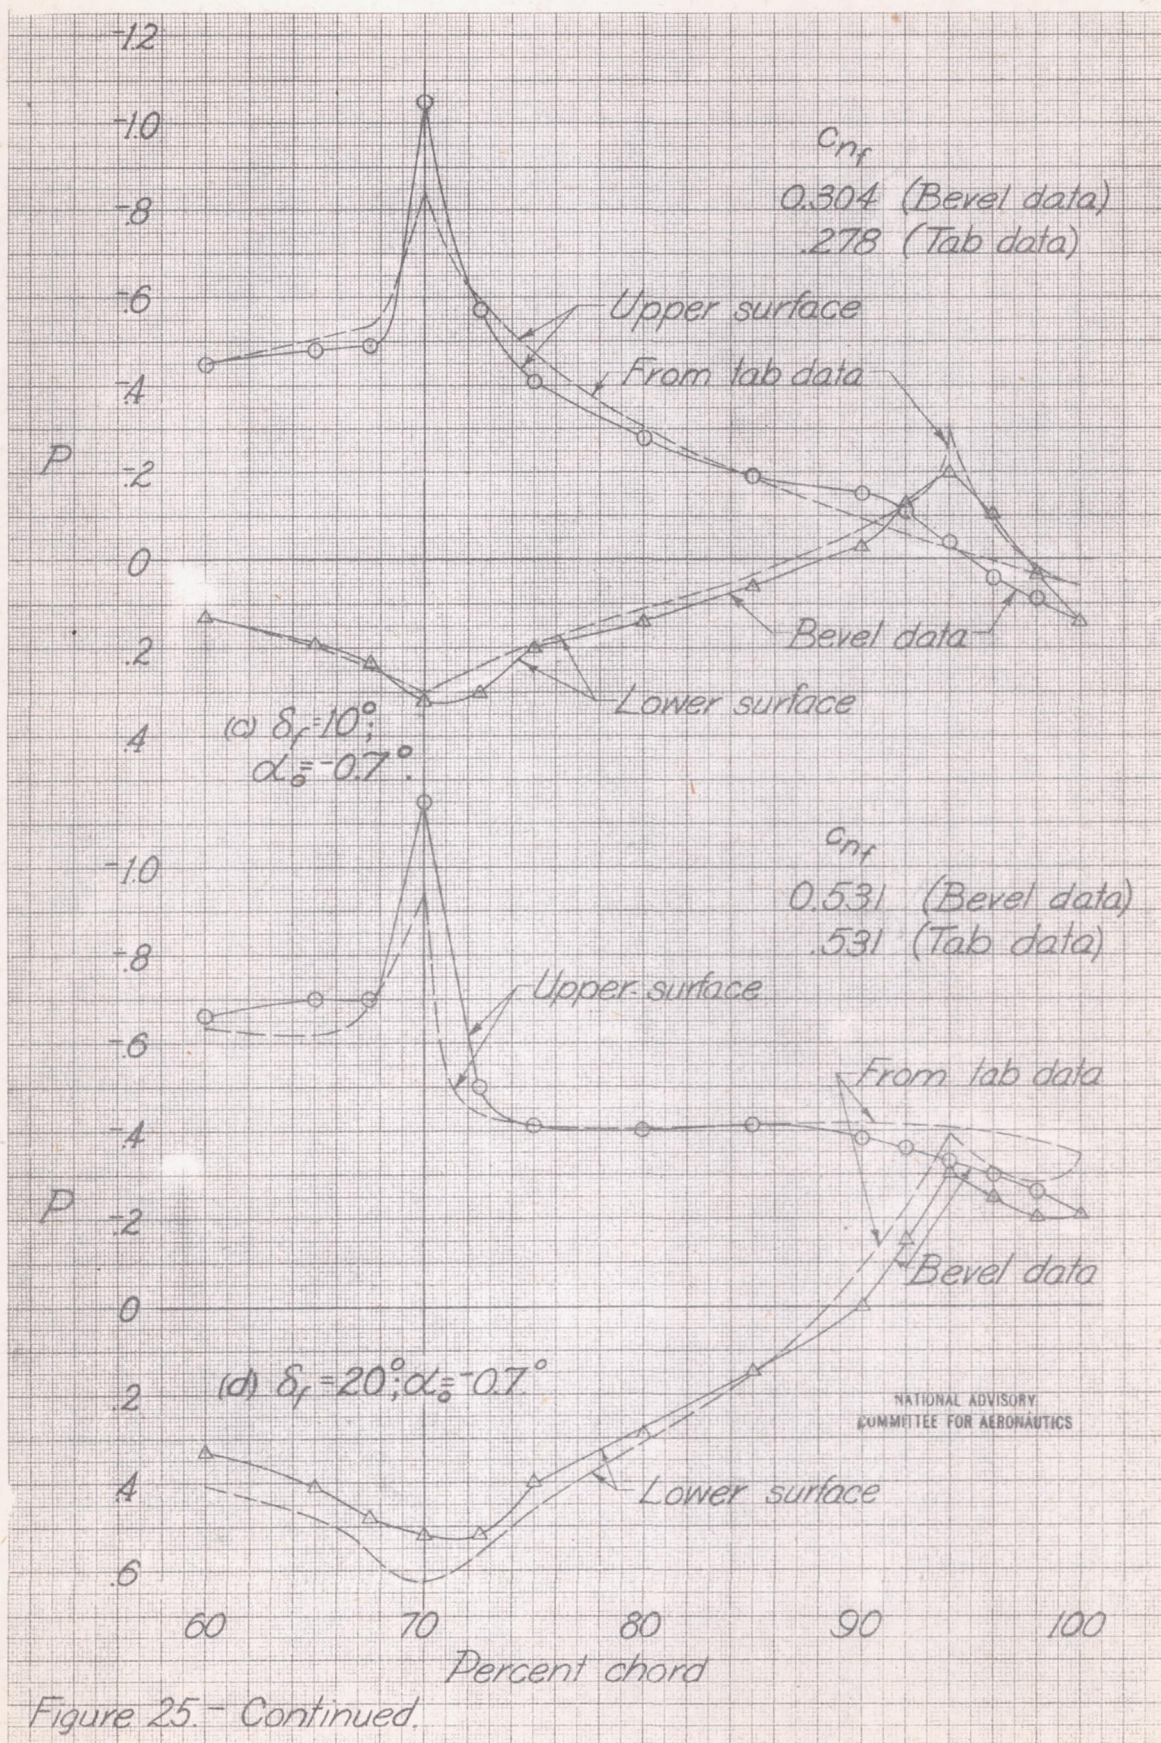 -1.2
-1.0
-.8
-.6
-.4
P
-.2
0
.2
.4
cnf
0.304 (Bevel data)
.278 (Tab data)
Upper surface
From tab data
Bevel data
Lower surface
(c) δf=10°;
αo=-0.7°.
-1.0
-.8
-.6
-.4
P
-.2
0
.2
.4
.6
cnf
0.531 (Bevel data)
.531 (Tab data)
Upper surface
From tab data
Bevel data
(d) δf=20°; αo=-0.7°
NATIONAL ADVISORY
COMMITTEE FOR AERONAUTICS
Lower surface
60 70 80 90 100
Percent chord
Figure 25.- Continued.